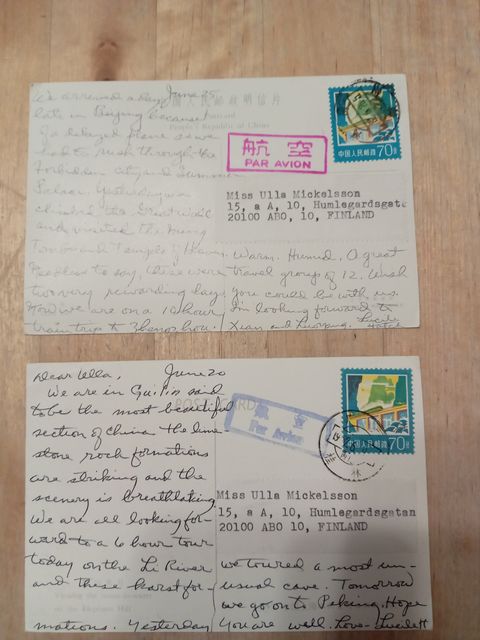 We arrived a day June 25
late in Beijing because
of a delayed plane so we
had to rush through the
Forbidden city and Summer
Palace. Yesterday we
climbed the Great Wall
and visited the Ming
Tombs and Temple of Heaven.
Needless to say, these were
two very rewarding days.
Now we are on a 10 hour
train trip to Zhengzhou.
中国人民邮政明信片
People's Republic of China
航空
PAR AVION
中国人民邮政 70分
Miss Ulla Mickelsson
15, a A, 10, Humlegardsgata
20100 ABO, 10, FINLAND
Warm. Humid. A great
travel group of 12. Wish
you could be with us.
I'm looking forward to
Xian and Luoyang. Lucile
Dear Ulla, June 20
We are in Guilin said
to be the most beautiful
section of China. The lime-
stone rock formations
are striking and the
scenery is breathtaking.
We are all looking for-
ward to a 6 hour tour
today on the Li River
and these karst for-
mations. Yesterday
POSTCARD
航空
Par Avion
中国人民邮政 70分
Miss Ulla Mickelsson
15, a A, 10, Humlegardsgatan
20100 ABO 10, FINLAND
we toured a most un-
usual cave. Tomorrow
we go on to Peking. Hope
you are well. Love - Lucile H